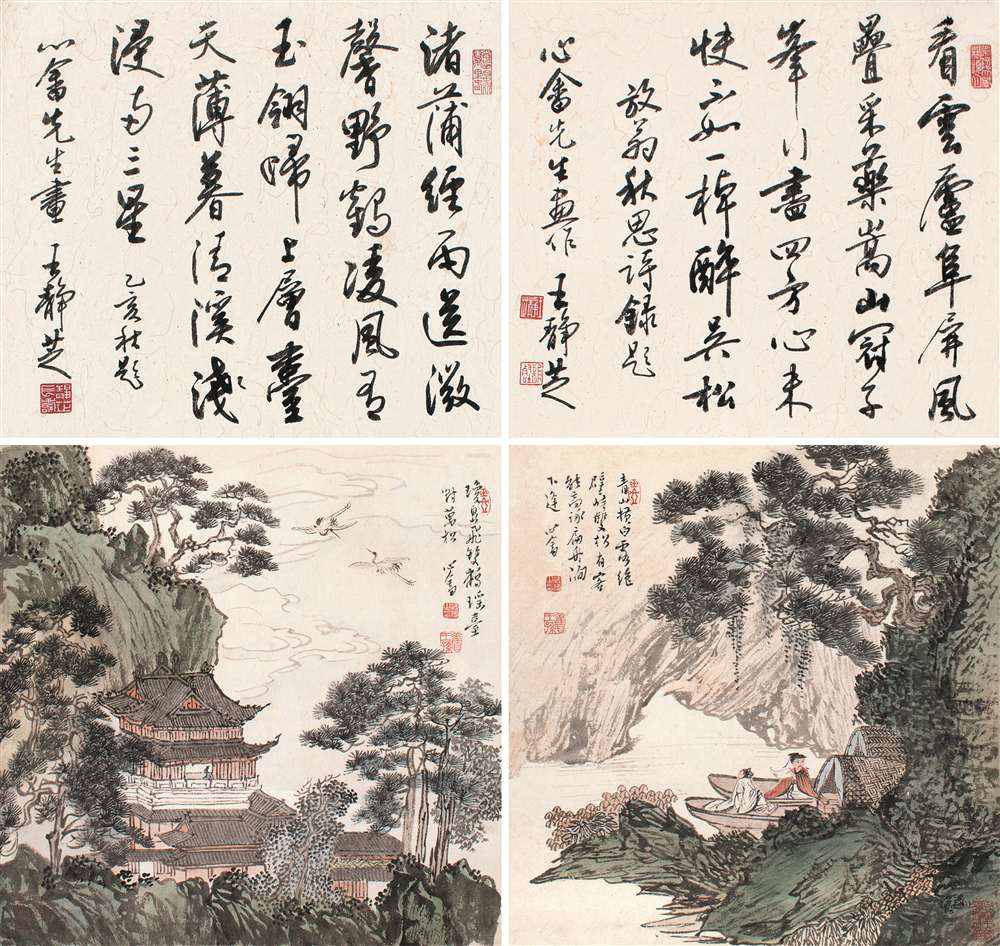 看雲廬阜屏風
疊采藥嵩山冠子
峯行盡四方心未
快不如一棹醉吳松
放翁秋思詩錄題
心畬先生畫作 王靜芝
渚蒲經雨送微
馨野鶴凌風有
玉翎歸上層臺
天薄暮清溪淺
浸兩三星 乙亥秋題
心畬先生畫 王靜芝
青山橫白露絕
壁峙雙松有客
能高詠扁舟澗
下逢 心畬
瓊島飛雙鶴瑤臺
對萬松 心畬